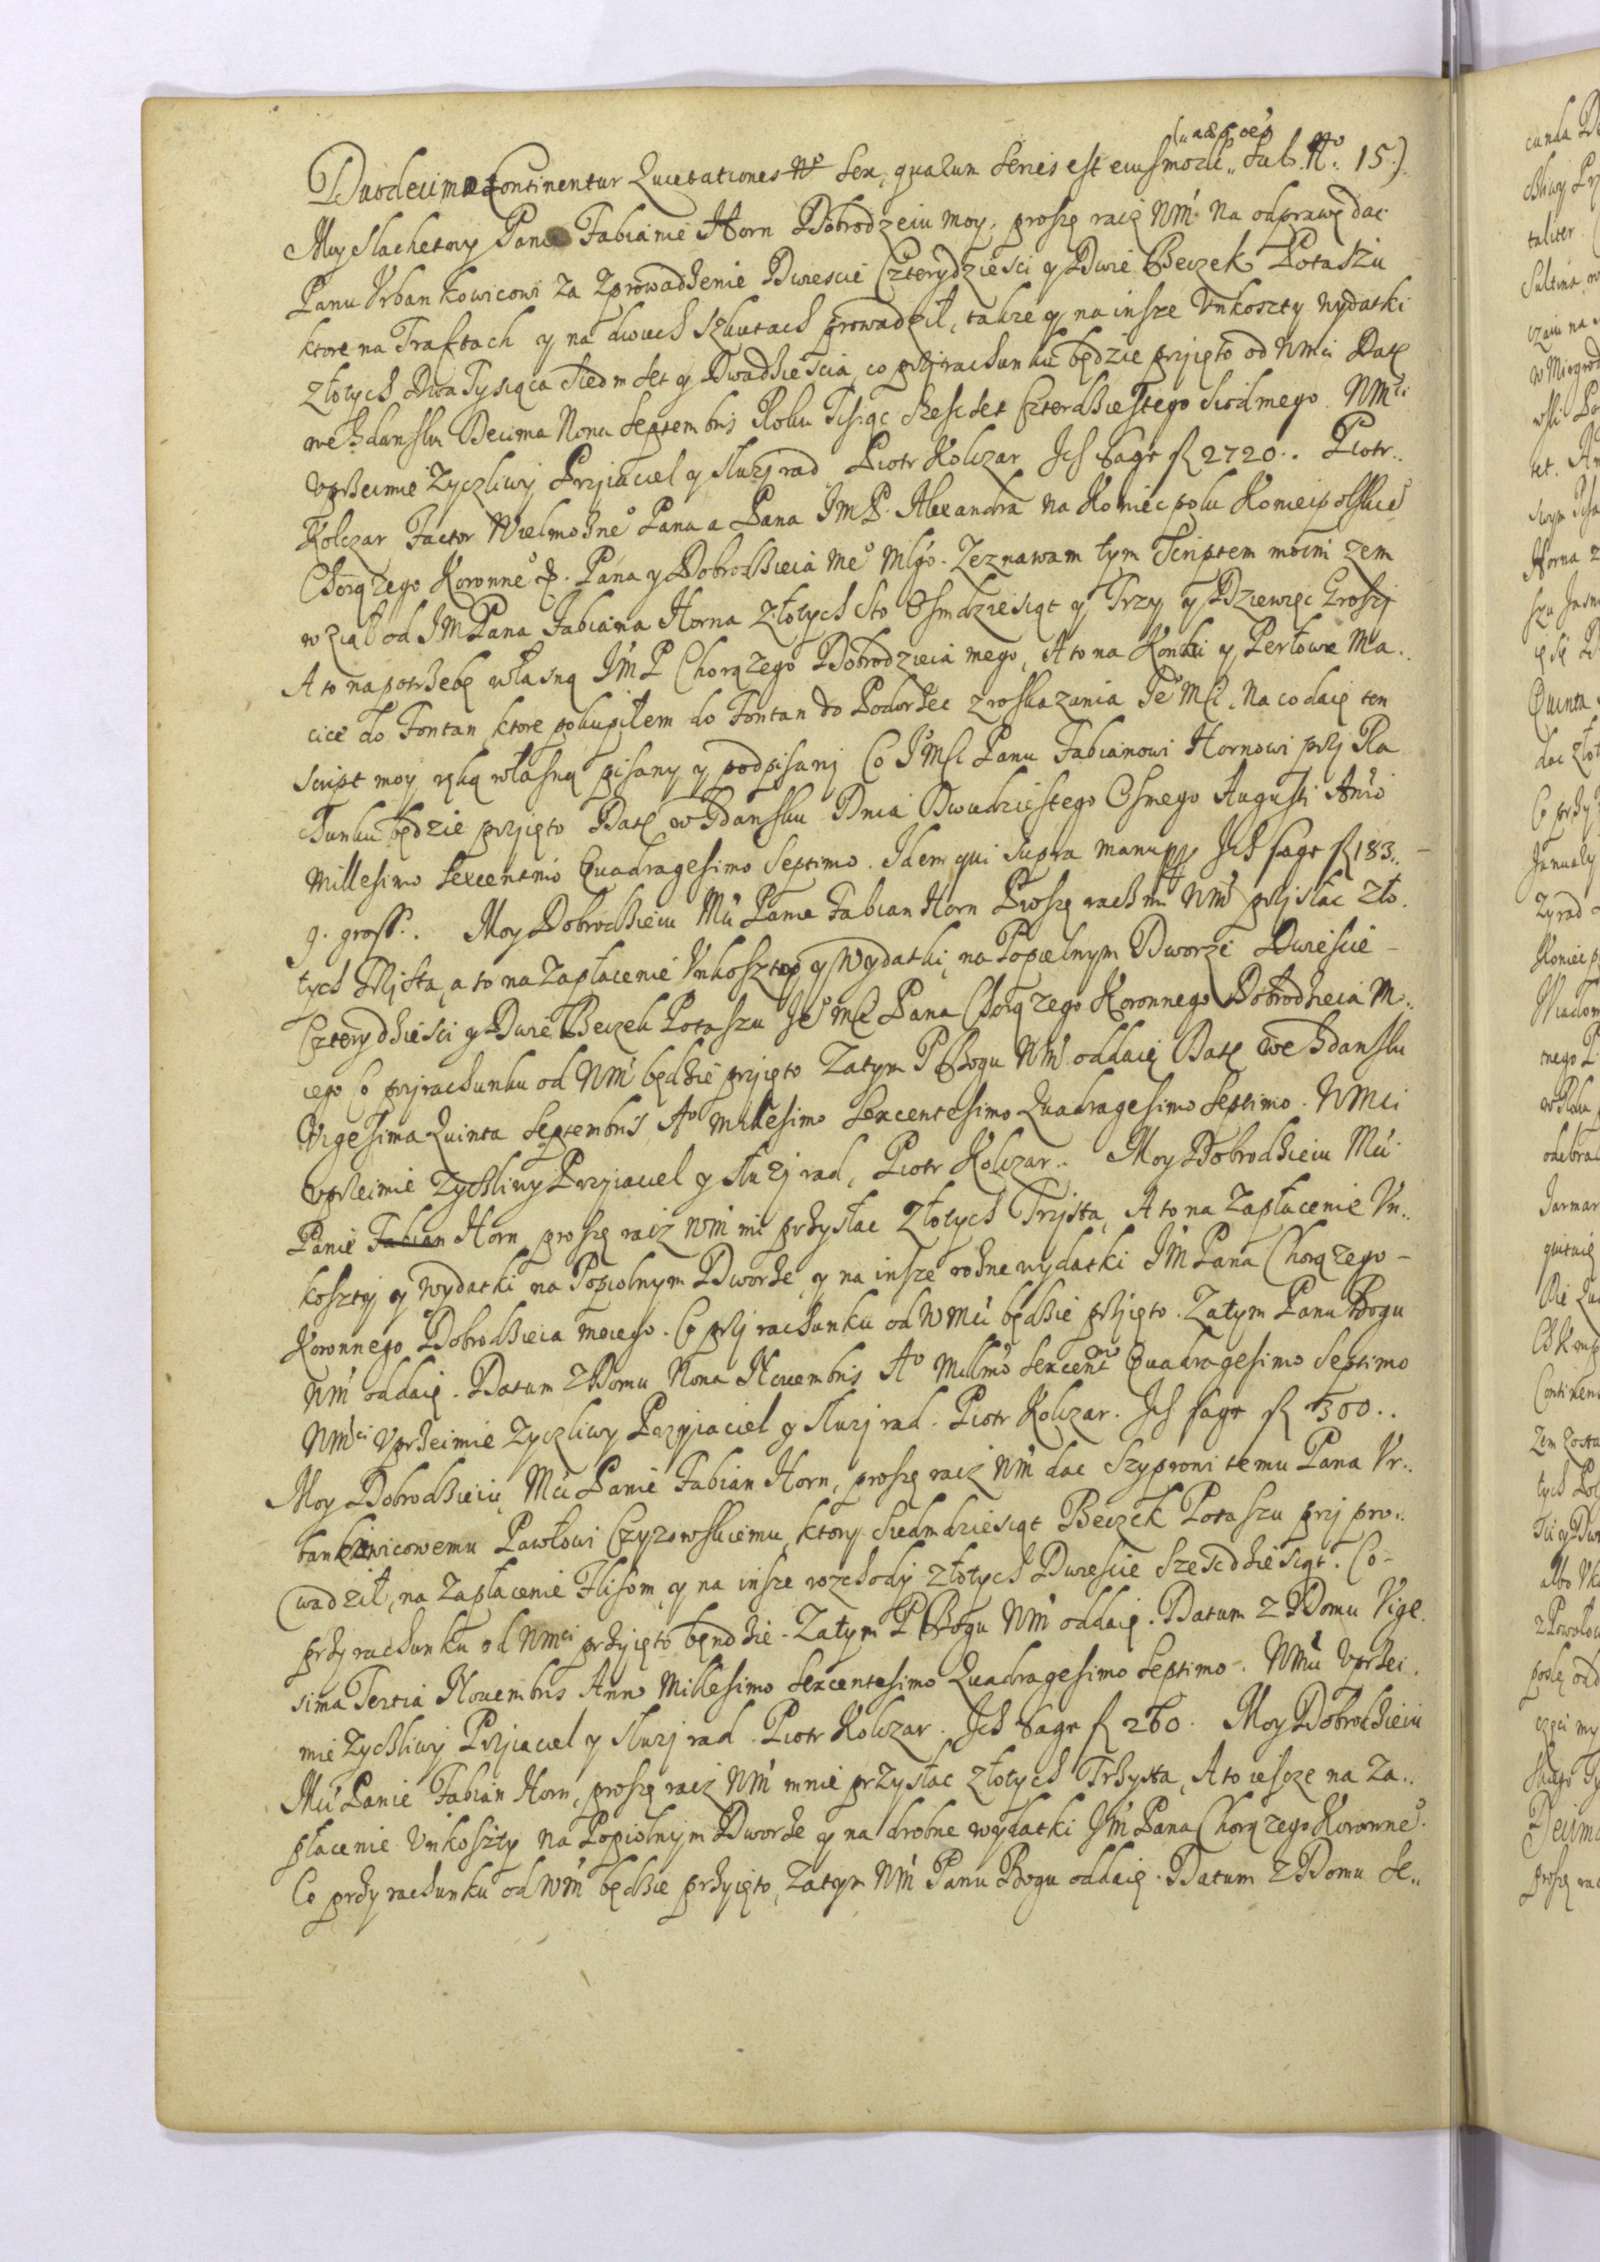 Duodecima Continentur Quietationes Sex, qualum Series est eiusmodi Sub. No. 15.)
Moy Slachetny Panie Fabianie Horn Dobrodzeiu moy, proszę racz WM. Na odprawę dac
Panu Urbankowicowi Za Zprowadzenie Dwiescie Czterydziesci y Dwie Beczek Potaszu
ktore na Traftach y na dwuch Szkutach prowadził, takze y na insze Unkoszty wydatki
złotych Dwa Tysiąca Siedm Set y Dwadziescia, co przi rachunku będzie prziięto od WMci Datę
we Gdansku Decima Nona Septembris Roku Tisiąc Szesc Set Czterdziestego Siodmego WMci
Uprzeimie Zyczliwy Przyiaciel y Służi rad Piotr Kolczar Ich Sage fl 2720.. Piotr..
Kolczar Factor Wielmożne° Pana a Pana IMP. Alexandra Na Koniecpolu Koniecpolskie°
Chorązego Koronne° &. Pana y Dobrodzieia me° Młgo. Zeznawam tym Scriptem moim zem
wziął od IMPana Fabiana Horna Złotych Sto Osmdziesiąt y Trzy y Dziewięc Groszi
A to na potrzebę własną IMP Chorązego Dobrodzieia mego, A to na Konchi y Perłowe Ma..
cice do Fontan ktore pokupiłem do Fontan do Podorzec z roskazania Je° Mści. Na co daię ten
script moy ręką własną pisany y podpisany Co I°Mści Panu Fabianowi Hornowi przj Ra
chunku będzie prziięto Datę w Gdansku Dnia Dwudziestego Osmego Augusti Anno
Millesimo Sexcentmo Quadragesimo Septimo. Idem qui supra manu ppp Ich sage fl 183..
9. gross.. Moy Dobrodzieiu Mći Panie Fabian Horn Proszę racz mi WM prziisłac Zło.
tych Trzista, a to na Zapłacenie Unkosztow y Wydatki, na Popielnym Dworze Dwiescie -
Czterydziesci y Dwie Beczek Potaszu Je° Mści Pana Chorązego Koronnego Dobrodzieia M..
iego Co przi rachunku od WM będzie prziięto Zatym P Bogu WM oddaię Datę we Gdansku
Vigesima Quinta Septembris A° Millesimo Sexcentesimo Quadragesimo Septimo. WMci
Uprzeimie Zyczliwy Przyiaciel y Służi rad, Piotr Kolczar.. Moy Dobrodzieiu Mći
Panie Fabian Horn proszę racz WM mi przysłac Złotych Trzista, A to na Zapłacenie Un..
koszty y Wydatki na Popiolnym Dworze, y na insze rożne wydatki IM Pana Chorązego -
Koronnego Dobrodzieia moiego. Co przi rachunku od WMći będzie prziięto. Zatym Panu Bogu
WM oddaię. Datum Z Domu Nona Novembris A° Millmo Sexcentmo Quadragesimo Septimo
WMści Uprzeimie Zyczliwy Przyiaciel y Służi rad. Piotr Kolczar. Ich sage fl 300..
Moy Dobrodzieiu, Mći Panie Fabian Horn, proszę racz WM dac Szyprowi temu Pana Ur..
bankowicowemu Pawłowi Czyzowskiemu, ktory Siedmdziesiąt Beczek Potaszu przj pro..
wadził, na Zapłacenie Flisom, y na insze rozchody złotych Dwiescie Szescdziesiąt. Co -
przy rachunku od WMci przyięto będzie. Zatym P Bogu WM oddaię. Datum Z Domu Vige.
sima Tertia Novembris Anno Millesimo Sexcentesimo Quadragesimo Septimo. WMći Uprzei.
mie Zyczliwy Prziiaciel y Służi rad. Piotr Kolczar. Ich Sage fl 260. Moy Dobrodzieiu
Mći Panie Fabian Horn, proszę racz WM mnie przysłac złotych Trzysta, A to iescze na Za..
płacenie Unkoszty na Popiolnym Dworze y na drobne wydatki IM Pana Chorązego Koronne°.
Co przy rachunku od WM będzie przyięto, Zatym WM Panu Bogu oddaię. Datum Z Domu Se..